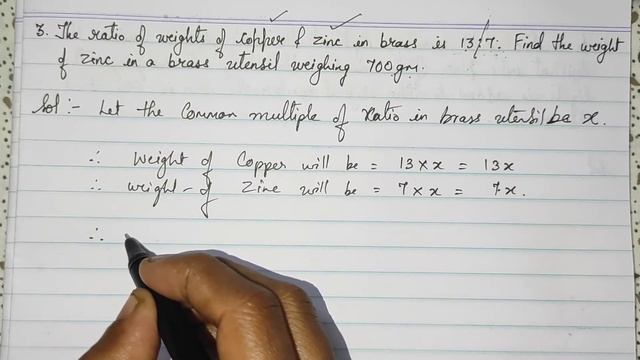 3. The ratio of weights of copper & zinc in brass is 13:7. Find the weight
of zinc in a brass utensil weighing 700gm.
Sol :- Let the Common multiple of ratio in brass utensil be x.
∴ Weight of Copper will be = 13 × x = 13x
∴ weight of Zinc will be = 7 × x = 7x.
∴